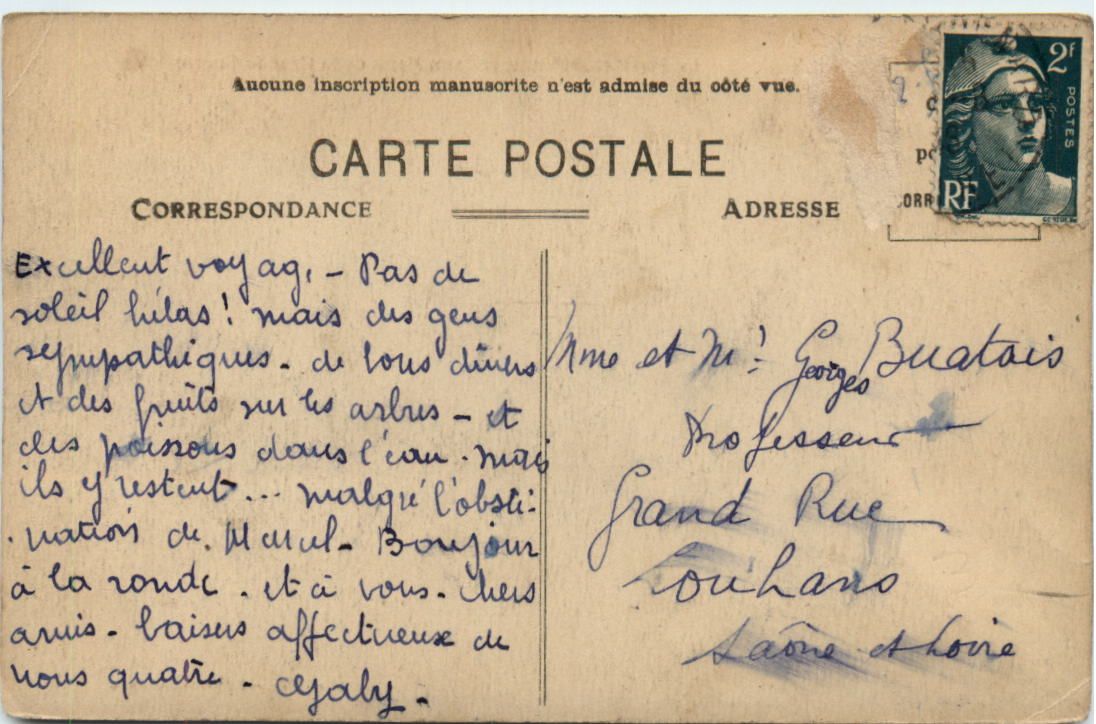 Aucune inscription manuscrite n'est admise du côté vue.
CARTE POSTALE
CORRESPONDANCE
ADRESSE
2F
POSTES
RF
CORR
Excellent voyage. - Pas de
soleil hélas! mais des gens
sympathiques - de bons dîners
et des fruits sur les arbres - et
des poissons dans l'eau. mais
ils y restent... malgré l'obsti-
-nation de Marcel - Bonjour
à la ronde - et à vous - chers
amis - baisers affectueux de
nous quatre -
Mme et Mr. Georges Buatois
Professeur
Grand Rue
Louhans
Saône et Loire